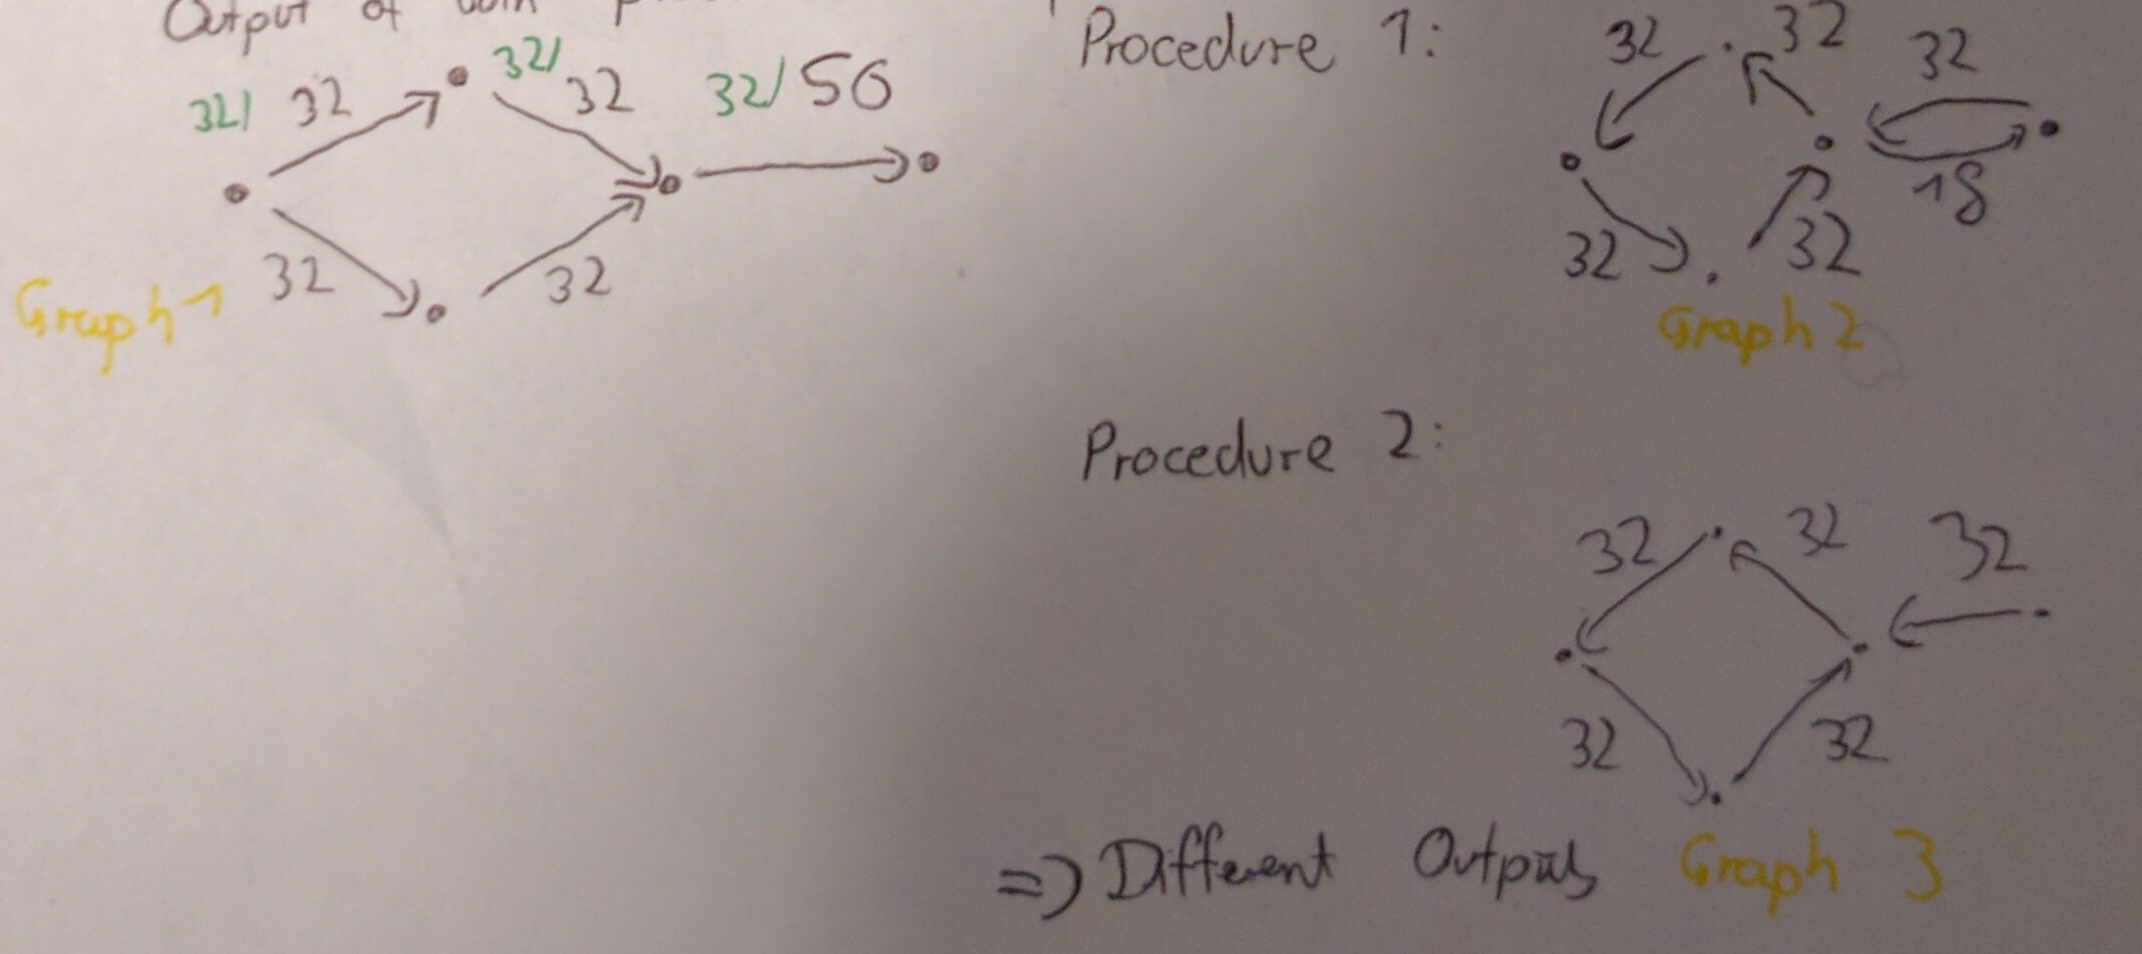 Output of both
32/ 32 32/ 32 32/ 50
32 32
Graph 1
Procedure 1:
32 32 32
18
32 32
Graph 2
Procedure 2:
32 32 32
32 32
=> Different Outputs Graph 3